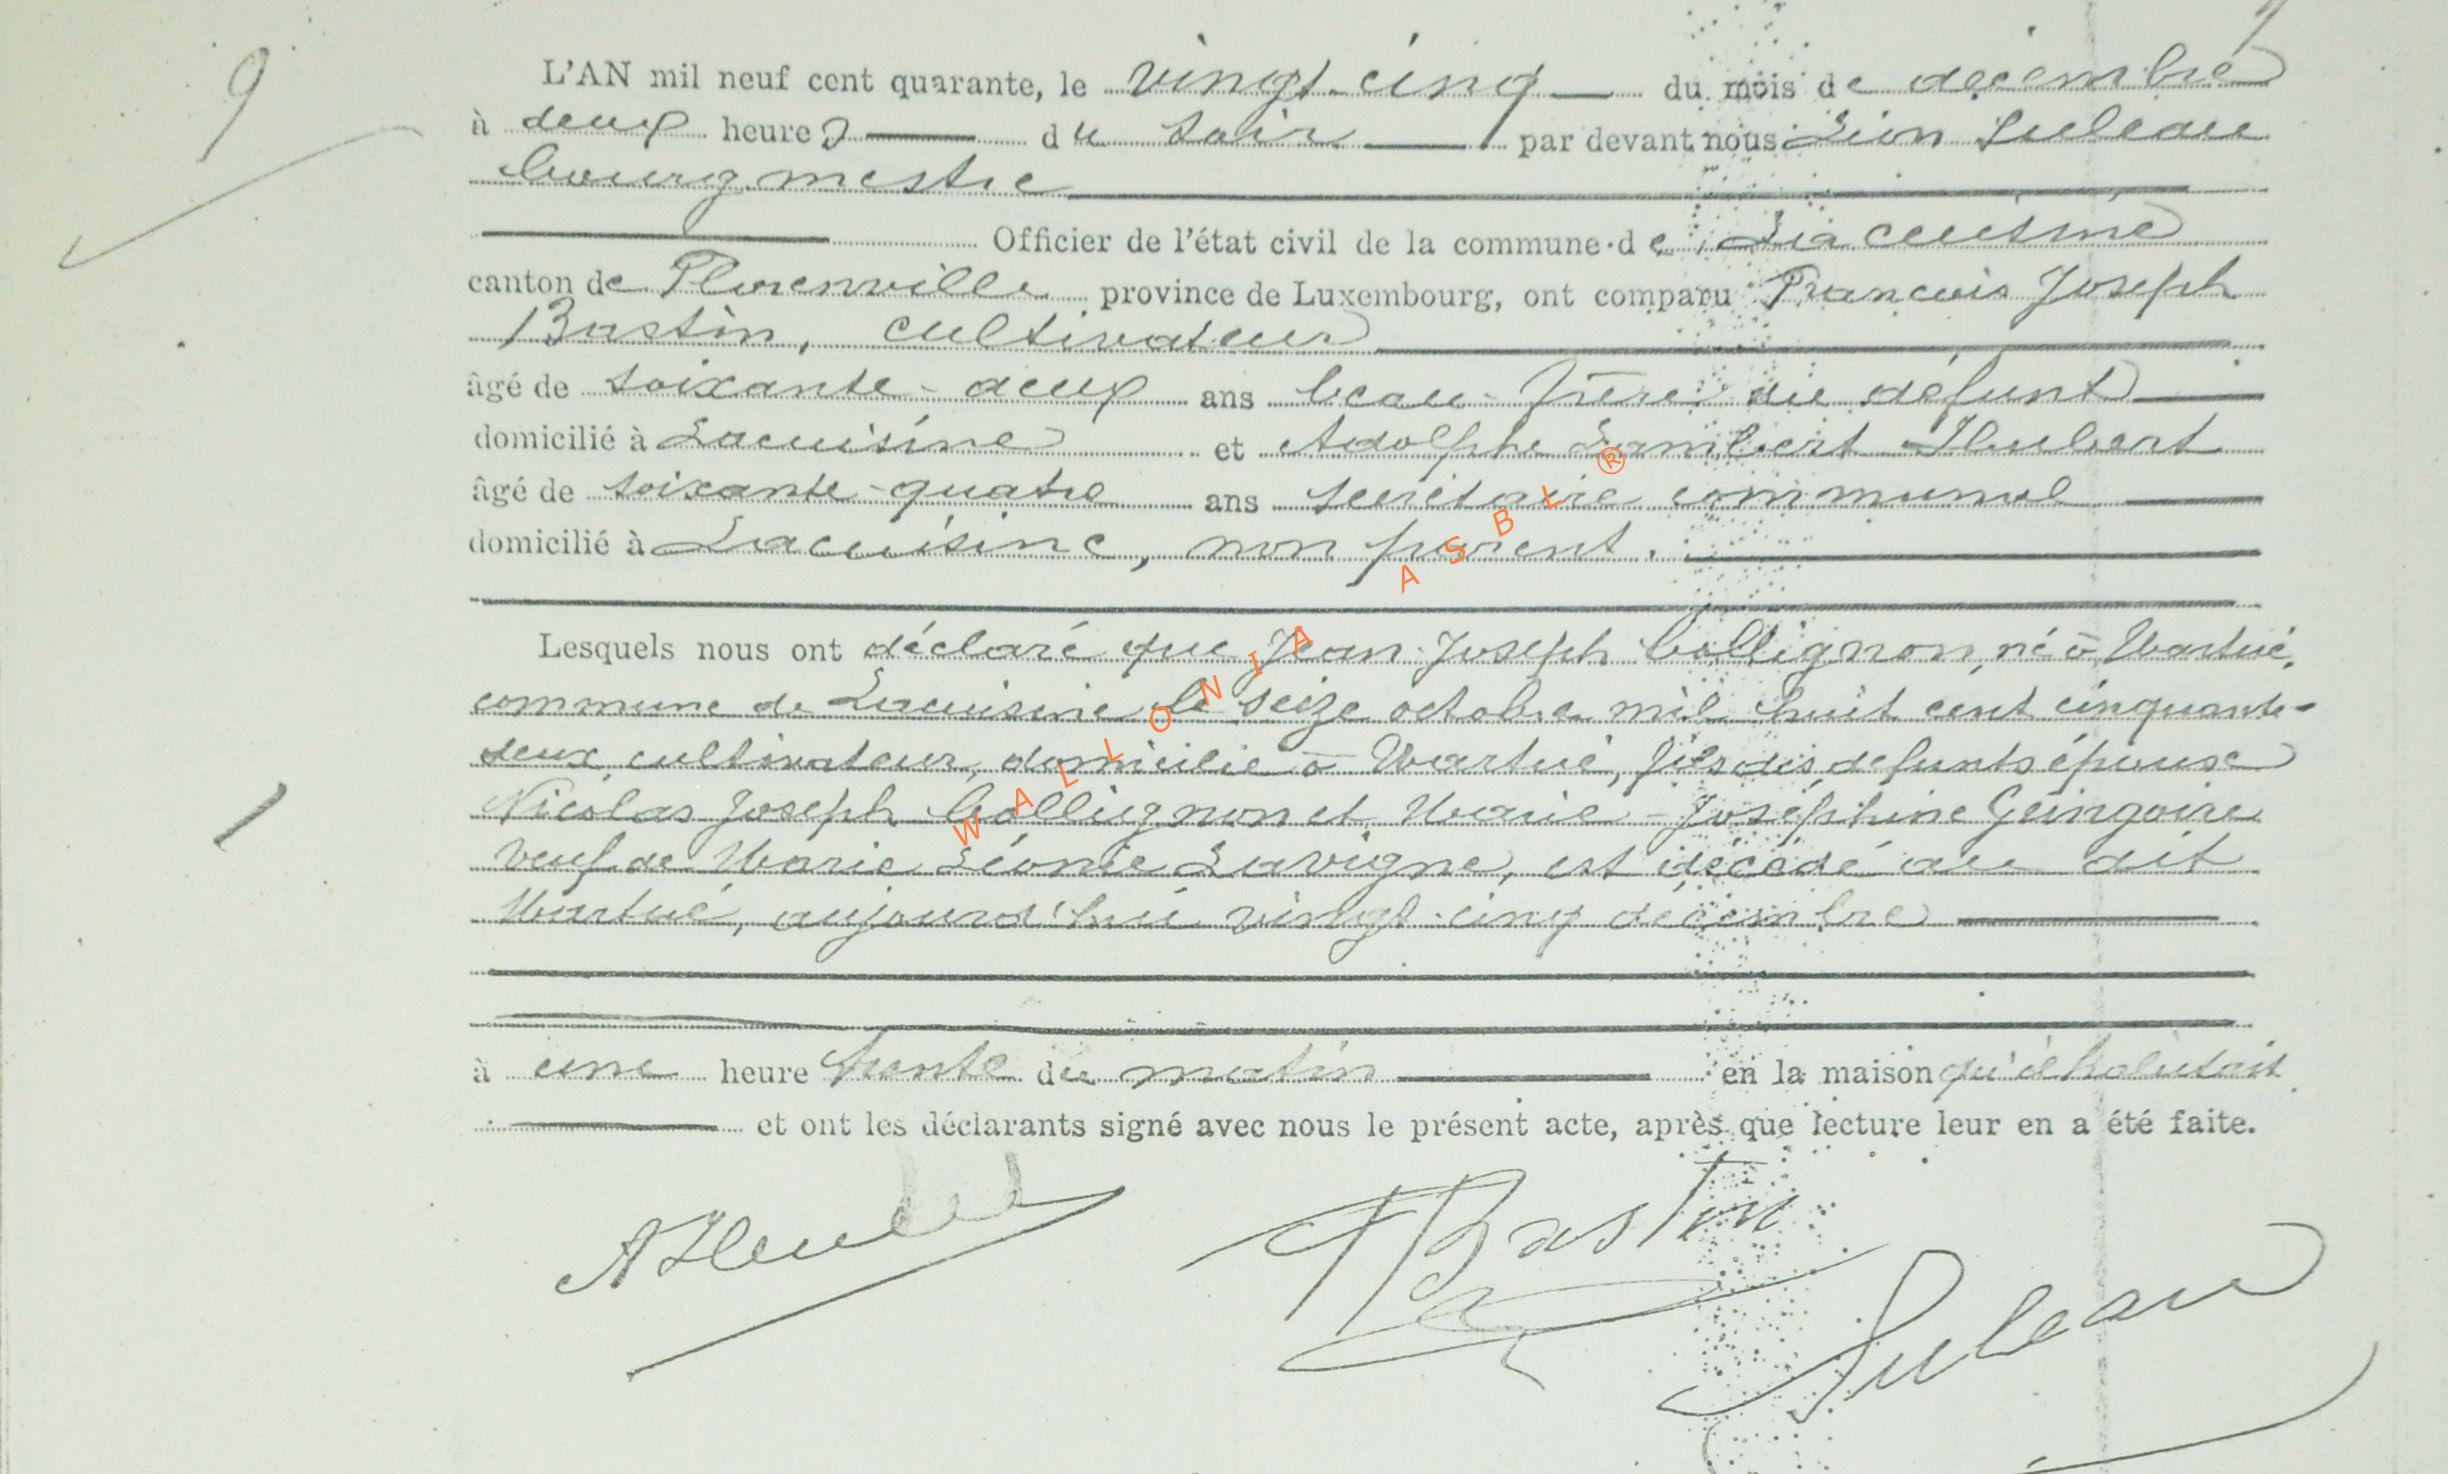 9
L'AN mil neuf cent quarante, le vingt-cinq du mois de décembre
à deux heures du soir par devant nous Léon Suleau
bourgmestre
Officier de l'état civil de la commune de Lacuisine
canton de Florenville province de Luxembourg, ont comparu François Joseph
Bastin, cultivateur
âgé de soixante-deux ans beau-frère du défunt
domicilié à Lacuisine et Adolphe Lambert Hubert
âgé de soixante-quatre ans secrétaire communal
domicilié à Lacuisine, non parent.
Lesquels nous ont déclaré que Jean-Joseph Collignon, né à Martué,
commune de Lacuisine le seize octobre mil huit cent cinquante-
deux, cultivateur, domicilié à Martué, fils des defunts épouse
Nicolas Joseph Collignon et Marie-Joséphine Gringoire
veuf de Marie Léonie Lavigne, est décédé au dit
Martué, aujourd'hui vingt-cinq décembre
1
à une heure trente du matin en la maison qu'il habitait
et ont les déclarants signé avec nous le présent acte, après que lecture leur en a été faite.
AHubert
FJBastin
Suleau
WALLONIA ASBL ®